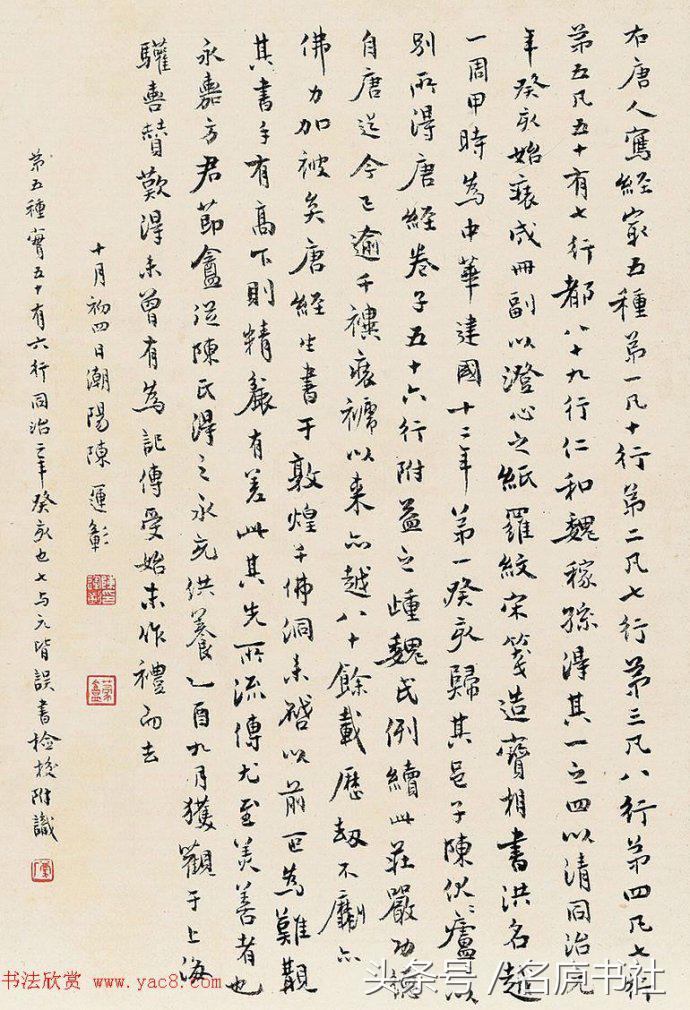 右唐人寫經寂五種第一凡十行第二凡七行第三凡八行第四凡七行
第五凡五十有七行都八十九行仁和魏稼孫得其一之四以清同治元
年癸亥始裝成冊副以澄心之紙羅紋宋箋造寶相書洪名越
一周甲時為中華建國十二年第一癸亥歸其邑子陳伏廬以
別所得唐經卷子五十六行附益之踵魏氏例續此莊嚴功德
自唐迄今已逾千禩裝褫以來亦越八十餘載歷劫不劘亦
佛力加被矣唐經生書于敦煌千佛洞未啓以前叵為難覯
其書手有高下則精麤有差此其先所流傳尤至美善者也
永嘉方君節盦從陳氏得之永充供養乙酉九月獲觀于上海
驩喜贊歎得未曾有為記傳受始末作禮而去
十月初四日潮陽陳運彰
第五種實五十有六行同治二年癸亥也七与元皆誤書檢校附識
书法欣赏 www.yac8.com
头条号 / 名庐书社